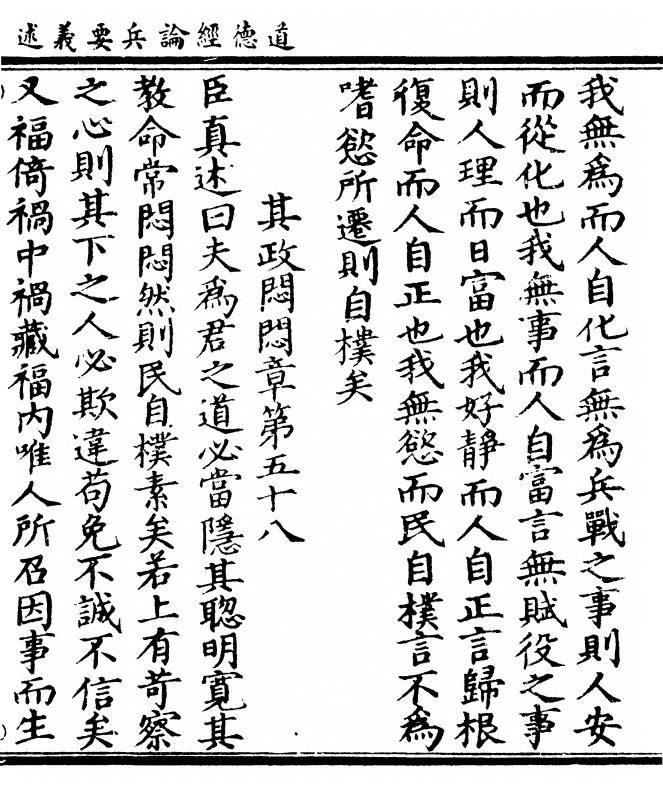 道德經論兵要義述
我無為而人自化言無為兵戰之事則人安
而從化也我無事而人自富言無賦役之事
則人理而日富也我好靜而人自正言歸根
復命而人自正也我無慾而民自樸言不為
嗜慾所遷則自樸矣
其政悶悶章第五十八
臣真述曰夫為君之道必當隱其聰明寬其
教命常悶悶然則民自樸素矣若上有苛察
之心則其下之人必欺違苟免不誠不信矣
又福倚禍中禍藏福內唯人所召因事而生